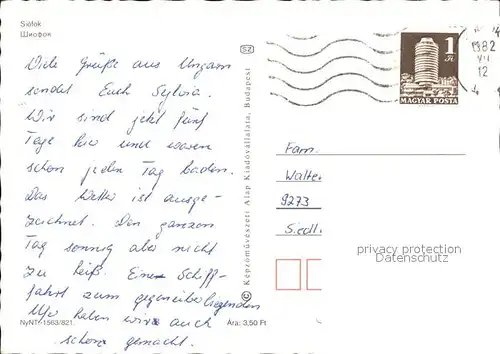 Siófok
Шиофок
Viele Grüße aus Ungarn
sendet Euch Sylvia.
Wir sind jetzt fünf
Tage hier und waren
schon jeden Tag baden.
Das Wetter ist ausge-
zeichnet. Den ganzen
Tag sonnig aber nicht
zu heiß. Eine Schiff-
fahrt zum gegenüberliegenden
Ufer haben wir auch
schon gemacht.
NyNT-1563/821.
Ára: 3,50 Ft
SZ
© Képzőművészeti Alap Kiadóvállalata, Budapest
1982
VII
12
1
Ft
MAGYAR POSTA
Fam.
Walte
9273
Siedl.
privacy protection
Datenschutz